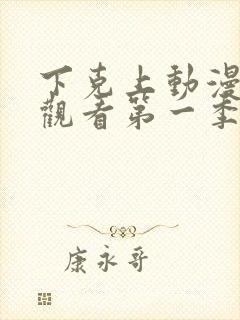 下克上動漫
觀看第一季
康永哥